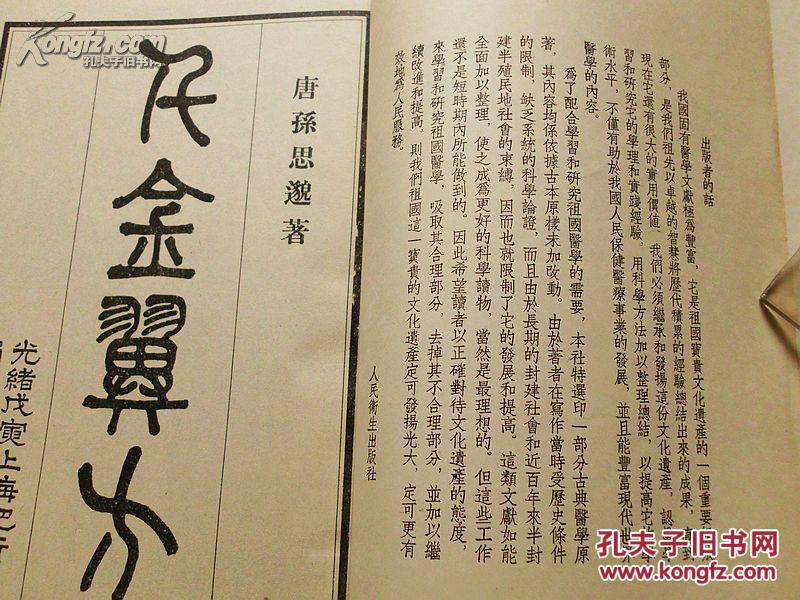 出版者的話
我國固有醫學文獻極爲豐富，它是祖國寶貴文化遺產的一個重要
部分，是我們祖先以卓越的智慧將歷代積累的經驗總結出來的成果，直到
現在它還有很大的實用價值。我們必須繼承和發揚這份文化遺產，認
習和研究它的學理和實踐經驗，用科學方法加以整理總結，以提高它的學
術水平，不僅有助於我國人民保健醫療事業的發展，並且能豐富現代世界
醫學的內容。
爲了配合學習和研究祖國醫學的需要，本社特選印一部分古典醫學原
著，其內容均係依據古本原樣未加改動。由於著者在寫作當時受歷史條件
的限制，缺乏系統的科學論證，而且由於長期的封建社會和近百年來半封
建半殖民地社會的束縛，因而也就限制了它的發展和提高。這類文獻如能
全面加以整理，使之成爲更好的科學讀物，當然是最理想的。但這些工作
還不是短時期內所能做到的。因此希望讀者以正確對待文化遺產的態度，
來學習和研究祖國醫學，吸取其合理部分，去掉其不合理部分，並加以繼
續改進和提高，則我們祖國這一寶貴的文化遺產定可發揚光大，定可更有
效地爲人民服務。
人民衛生出版社
唐孫思邈著
千金翼方
光緒戊寅上海
Kongfz.com
孔夫子旧书网
孔夫子旧书网
www.kongfz.com